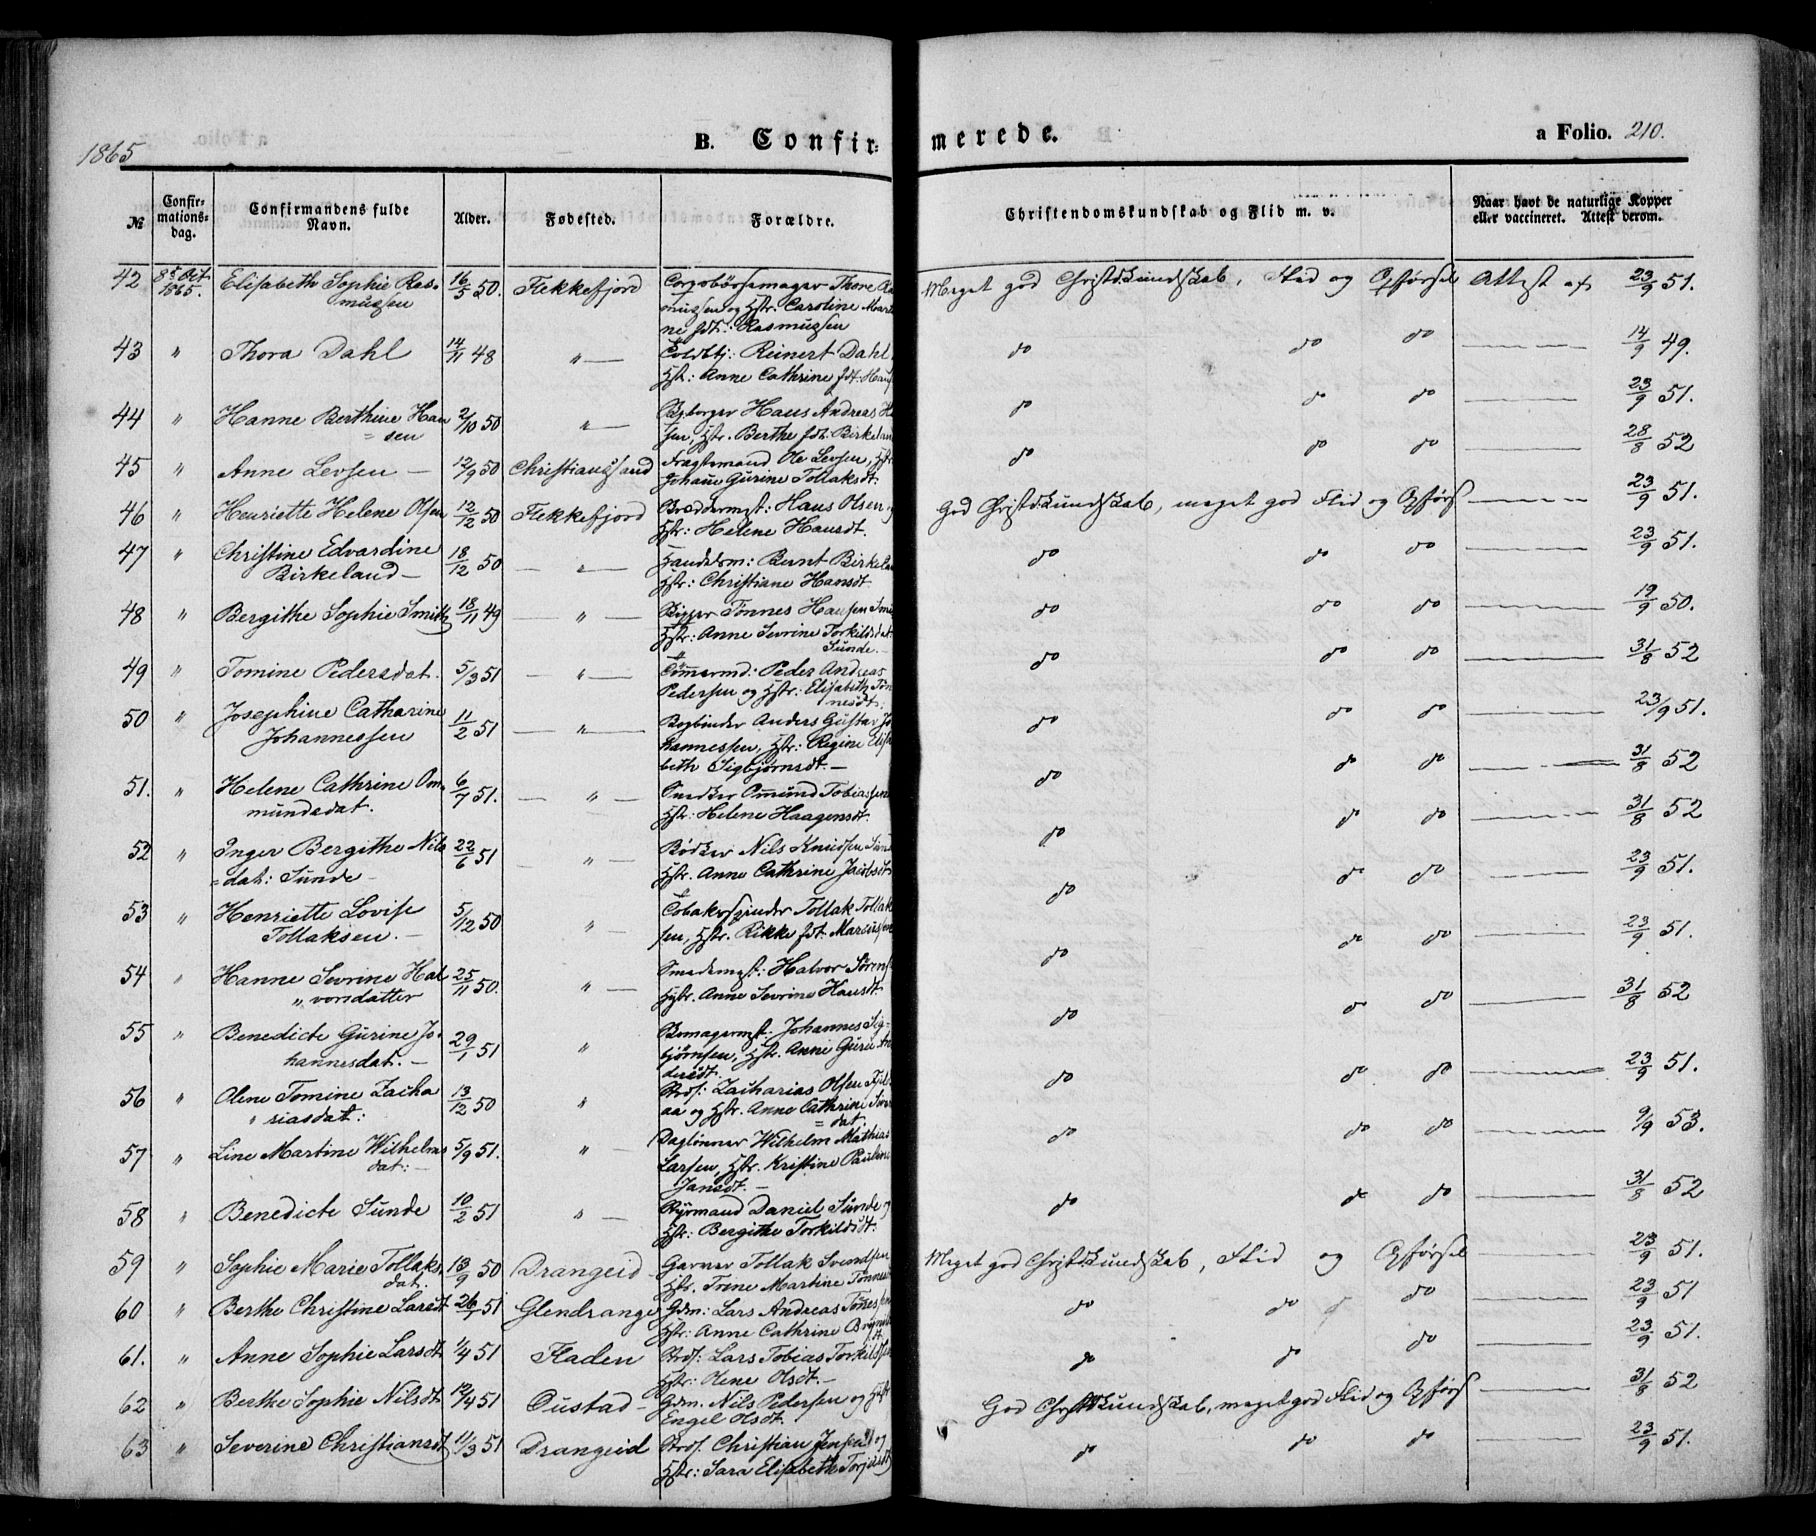 1865
B. Confir-
merede.
a Folio. 210.
№
Confir-
mations-
dag.
Confirmandens fulde
Navn.
Alder.
Fødested.
Forældre.
Christendomskundskab og Flid m. v.
Naar havt de naturlige Kopper
eller vaccineret. Attest derom.
42 8de Oct 1865. Elisabeth Sophie Ras= 16/5 50. Flekkefjord
mussen
mussen og Hstr. Caroline
ne fdt. Rasmussen
Meget god Christdkundskab, Flid og Opførsel Attest af 23/9 51.
43 " Thora Dahl 14/11 48 " — Toldbtj: Reinert Dahl
Hstr: Anne Cathrine fdt:
do do do — 14/9 49.
44 " Hanne Berthine Han 2/10 50 " — Byborger Hans Andreas
=sen
sen, Hstr. Berthe fdt. Birkeland
do do do — 23/9 51.
45 " Anne Levsen — 12/9 50 Christianssand Fragtemand Ole Levsen, Hstr
Johane Gurine Tollaksdt.
do do do — 28/8 52
46 " Henriette Helene Olsen 12/12 50 Flekkefjord Hans Olsen
Hstr: Helene Hansdt.
God Christdkundskab, meget god Flid og Opførs — 23/9 51.
47 " Christine Edvardine 18/12 50 — " — Handelsm: Bernt Birkeland
Birkeland —
Hstr: Christiane Hansdt
do do do — 23/9 51.
48 " Bergithe Sophie Smith 18/11 49 — " — Skipper Tønnes Hansen
Hstr: Anne Sevrine Torkildsdat.
Sunde. —
do do do — 19/9 50.
49 " Tomine Pedersdat. 5/3 51 — " — Tømermd: Peder Andreas
Pedersen og Hstr: Elisabeth Tøn
nesdt:
do do do — 31/8 52
50 " Josephine Catharine 11/2 51 — " — Bogbinder Anders Gustav Jo
Johannessen
hannessen, Hstr: Regine Elisa
beth Sigbjørnsdt. —
do do do — 23/9 51.
51. " Helene Cathrine Om= 6/7 51. — " — Snedker Omund Tobiassen
mundsdat.
Hstr: Helene Haagensdt.
do do do — 31/8 52
52 " Inger Bergithe Nils 22/6 51 " Bødker Nils Knudsen
=dat: Sunde —
Hstr. Anne Cathrine Jacobsdt
do do do — 31/8 52
53 " Henriette Lovise 5/12 50 " — Tobakspinder Tollak Tollak
Tollaksen. —
sen, Hstr. Rikke fdt. Marcussen
do do do — 23/9 51.
54 " Hanne Sevrine Hal 25/11 50. " — Smedemest: Halvor Sørens
"vorsdatter
Hstr. Anne Sevrine Hansdt.
do do do — 23/9 51.
55 " Benedicte Gurine Jo= 29/1 51 " Johannes Sig=
hannesdat. —
bjørnsen, Hstr. Anne Guru An
dersdt.
do do do — 31/8 52
56 " Olene Tomine Zacha 13/12 50 " Strds: Zacharias Olsen
" riasdat:
aa og Hstr. Anne Cathrine
=dat
do do do — 23/9 51.
57 " Line Martine Wilhelms 5/9 51. " — Daglønner Wilhelm Mathias
dat: —
Larsen, Hstr. Kristine Pauline
Jansdt. —
do do do — 9/9 53.
58 " Benedicte Sunde 10/2 51 " — Styrmand Daniel Sunde og
Hstr: Bergithe Torkildsdt:
do do do — 31/8 52
59 " Sophie Marie Tollaks 13/9 50 Drangeid — Garver Tollak Svendsen
dat.
Hstr. Trine Martine Tønnes
Meget god Christdkundskab, Flid og Opførsel — 23/9 51.
60 " Berthe Christine Larsdt 26/1 51 Glendrange Gdm: Lars Andreas
Hstr: Anne Cathrine
do do do — 23/9 51
61. " Anne Sophie Larsdt 1/4 51 Fladen Strds: Lars Tobias Torkildsen
Hstr: Olene Olsdt. —
do do do — 23/9 51.
62 " Berthe Sophie Nilsdt 12/4 51 Oustad — Gdm. Nils Pedersen og Hstr
Engel Olsdt.
God Christdkundskab, megetgod Flid og Opførs — 31/8 52
63 " Severine Christiansdt 11/3 51 Drangeid Strds. Christian Jensen og
Hstr: Sara Elisabeth
do do do — 23/9 51.